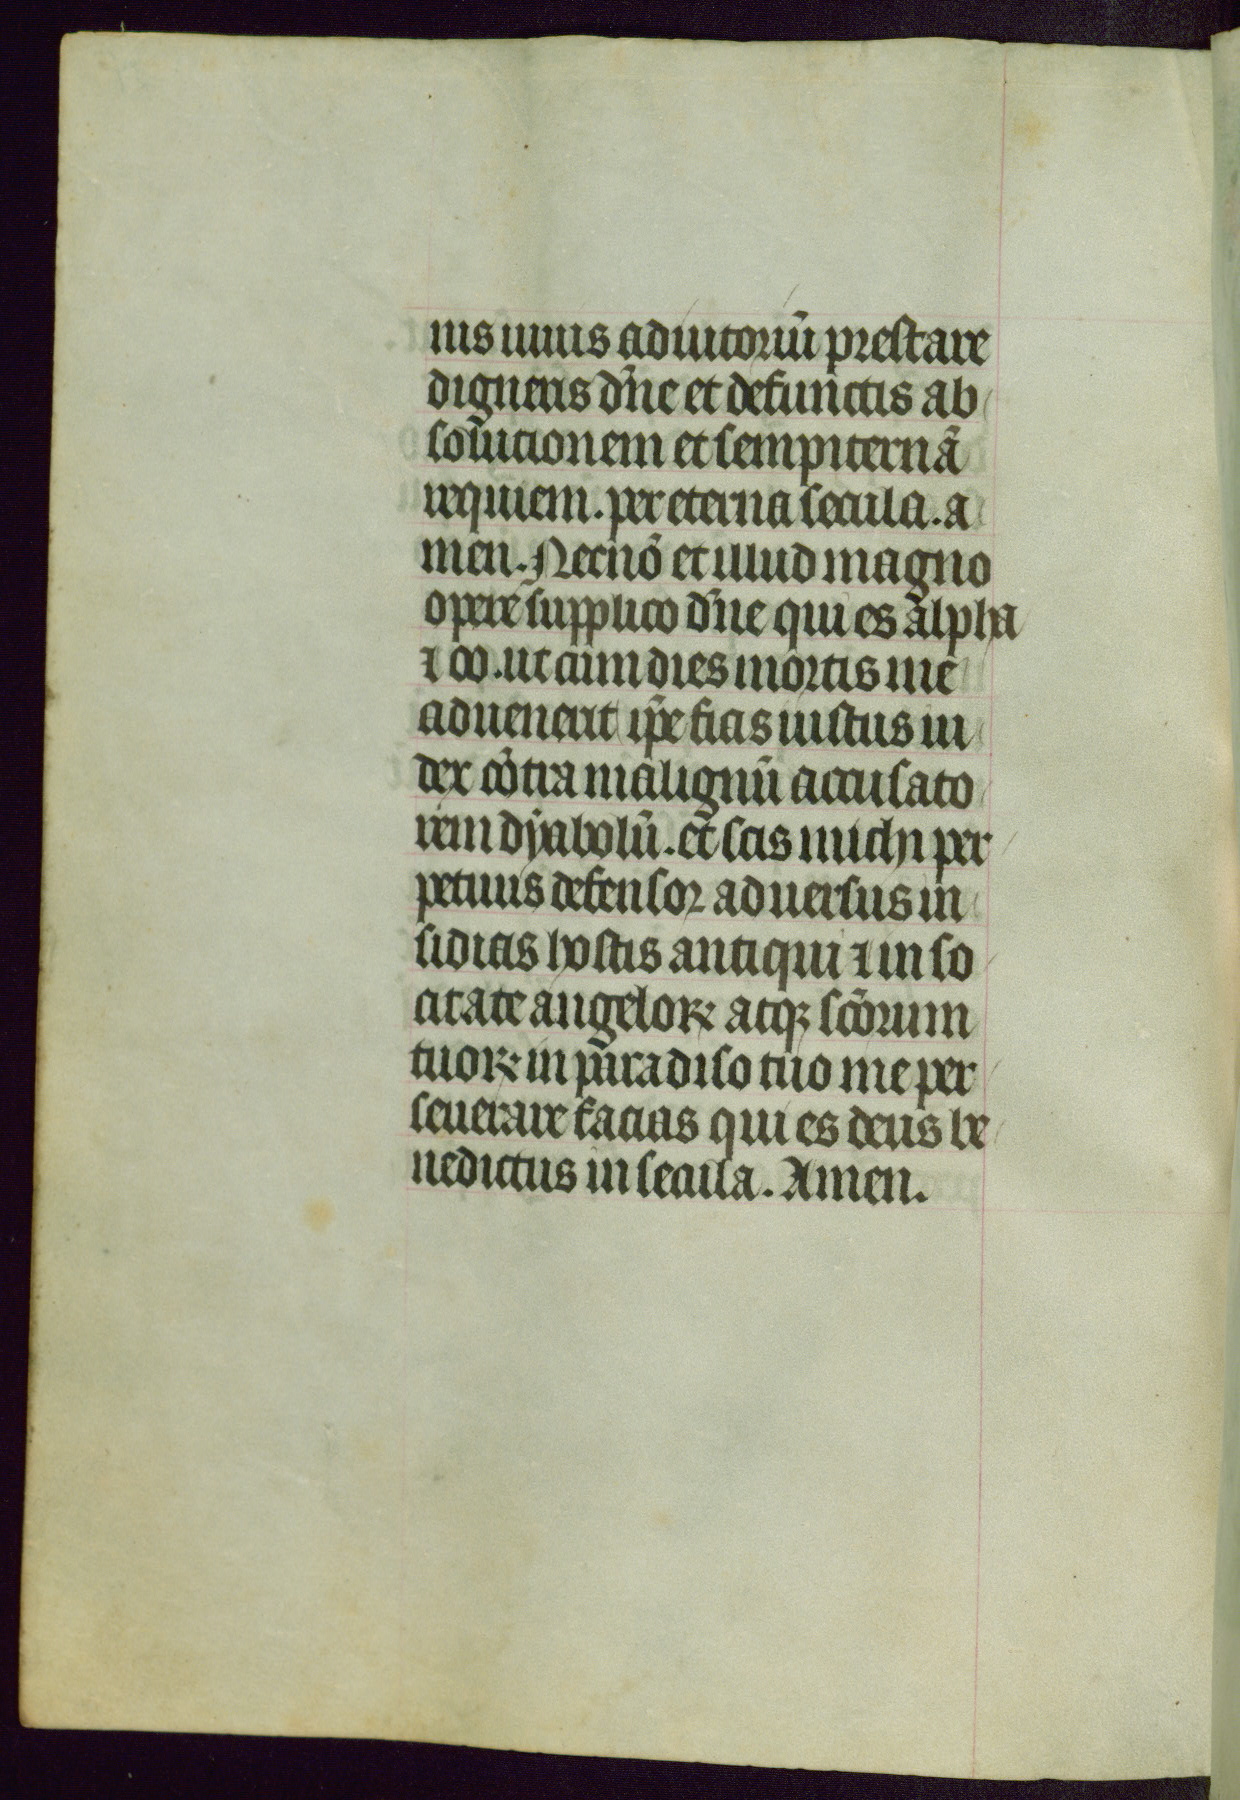 nis uiuis adiutoriũ prestare
digneris dñe et defunctis ab
solutionem et sempiternã
requiem. per eterna secula. a
men. Necnõ et illud magno
opere supplico dñe qui es alpha
⁊ ω. ut cum dies mortis mee
aduenerit ip̃e fias iustus iu
dex cõtra malignũ accusato
rem dyabolũ. et sis michi per
petuus defensor aduersus in
sidias hostis antiqui ⁊ in so
cietate angeloꝝ atqꝫ sc̃orum
tuoꝝ in paradiso tuo me per
seuerare facias qui es deus be
nedictus in secula. Amen.